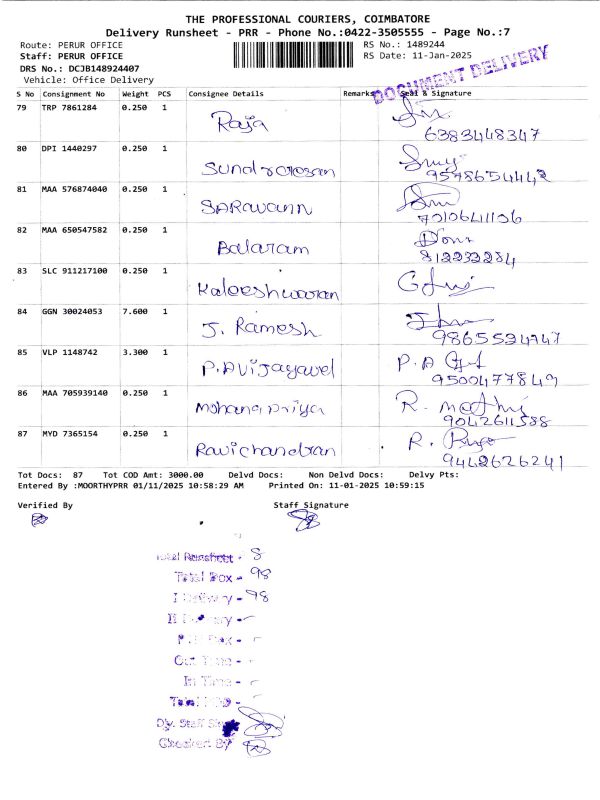 THE PROFESSIONAL COURIERS, COIMBATORE
Delivery Runsheet - PRR - Phone No.:0422-3505555 - Page No.:7
Route: PERUR OFFICE RS No.: 1489244
Staff: PERUR OFFICE RS Date: 11-Jan-2025
DRS No.: DCJB148924407
Vehicle: Office Delivery
DOCUMENT DELIVERY
S No Consignment No Weight PCS Consignee Details Remarks Seal & Signature
79 TRP 7861284 0.250 1 Raja
6383448347
80 DPI 1440297 0.250 1
9578654442
81 MAA 576874040 0.250 1 SARAVANN
7010641106
82 MAA 650547582 0.250 1 Balaram
812232284
83 SLC 911217100 0.250 1 Kaleeshwaran
84 GGN 30024053 7.600 1 J. Ramesh
9865534747
85 VLP 1148742 3.300 1 P.A Vijayavel P. A
9500477849
86 MAA 705939140 0.250 1 Mohanapriya R. mathi
9042611588
87 MYD 7365154 0.250 1 Ravichandran R.
9442626241
Tot Docs: 87 Tot COD Amt: 3000.00 Delvd Docs: Non Delvd Docs: Delvy Pts:
Entered By :MOORTHYPRR 01/11/2025 10:58:29 AM Printed On: 11-01-2025 10:59:15
Verified By Staff Signature
Total Runsheet - 8
Total Dox - 98
I Delivery - 98
Out Time -
In Time -
Dly. Staff
Checked By